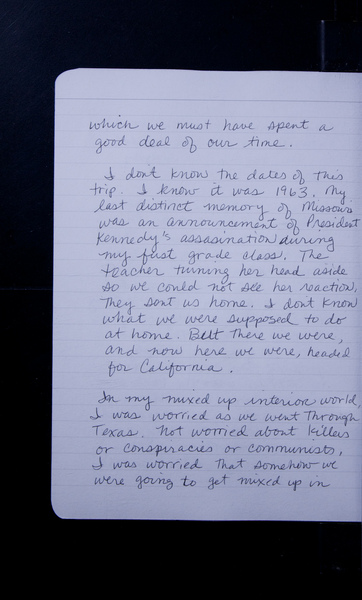 which we must have spent a
good deal of our time.
I dont know the dates of this
trip. I know it was 1963. My
last distinct memory of Missouri
was an announcement of President
Kennedy's assasination during
my first grade class. The
teacher turning her head aside
so we could not see her reaction,
They sent us home. I dont know
what we were supposed to do
at home. But there we were,
and now here we were, headed
for California.
In my mixed up interior world,
I was worried as we went through
Texas. Not worried about killers
or conspiracies or communists,
I was worried that somehow we
were going to get mixed up in